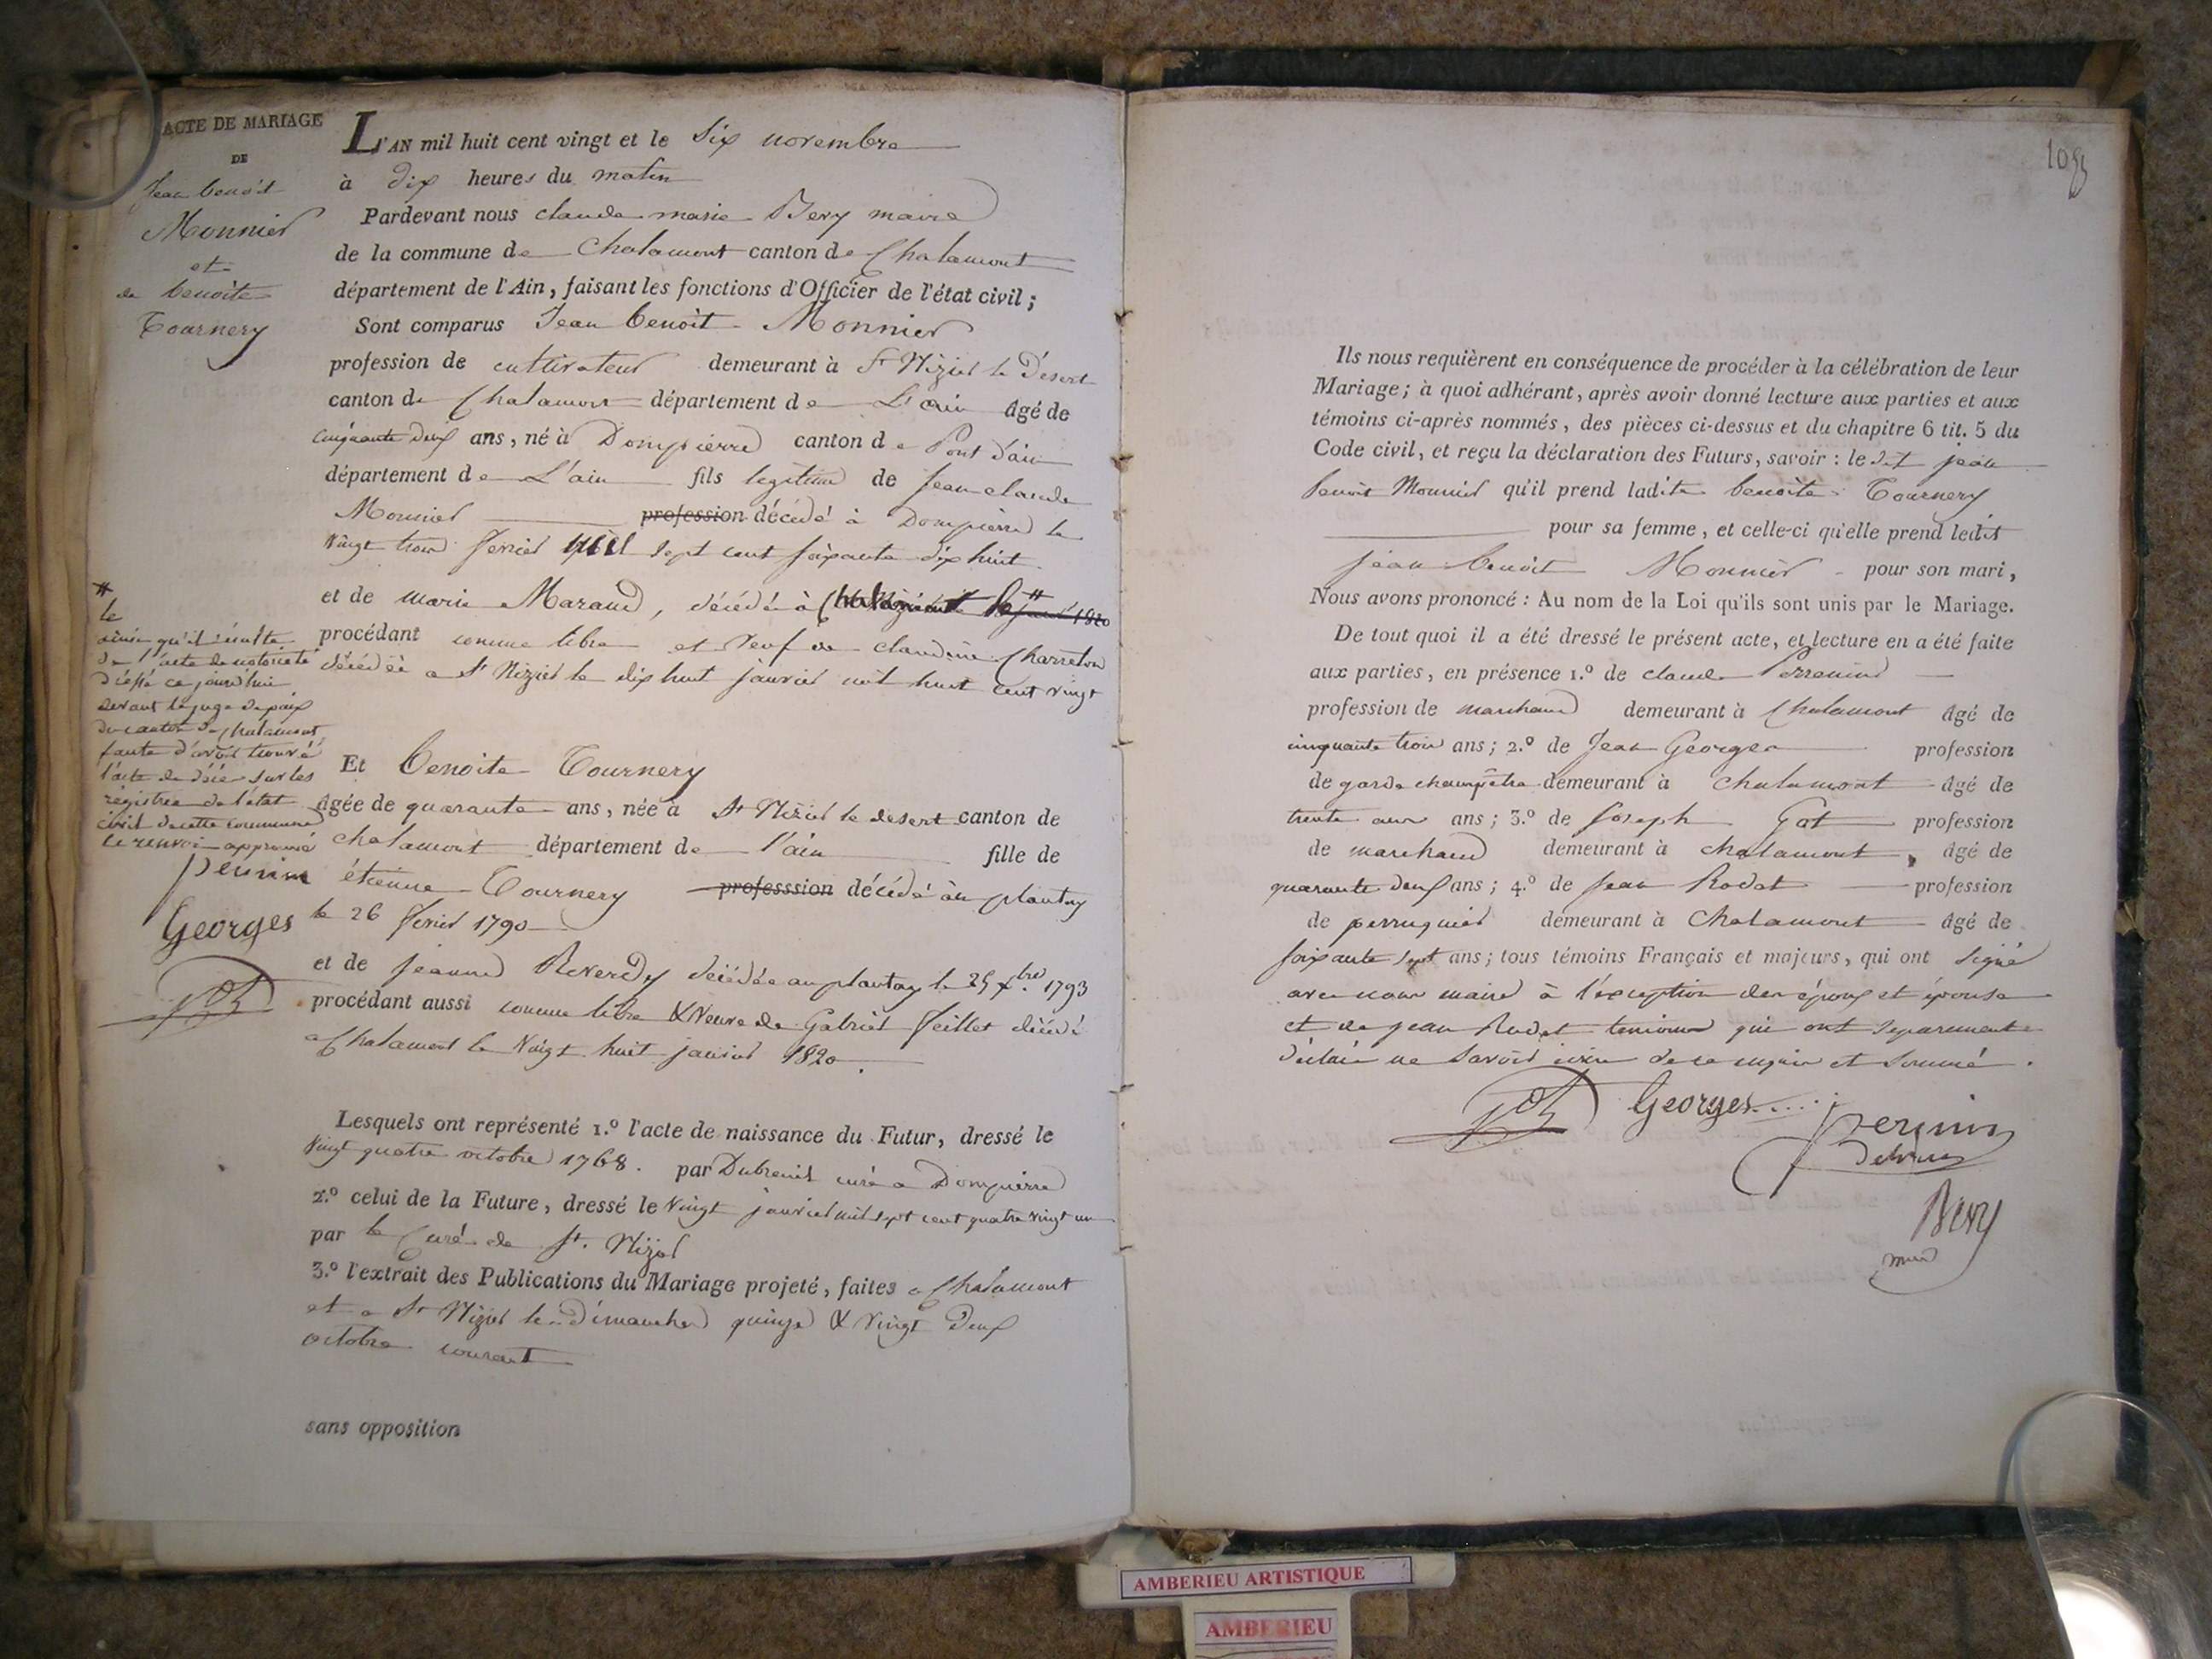 ACTE DE MARIAGE
DE
Jean benoit
Monnier
et
de benoite
Tournery
L'AN mil huit cent vingt et le Six novembre
à dix heures du matin
Pardevant nous claude marie Bery maire
de la commune de Chalamont canton de Chalamont
département de l'Ain, faisant les fonctions d'Officier de l'état civil ;
Sont comparus Jean benoit Monnier
profession de cultivateur demeurant à St Nizier le Désert
canton de Chalamont département de L'ain âgé de
cinquante deux ans, né à Dompierre canton de Pont d'ain
département de L'ain fils legitime de Jean claude
Monnier profession décédé à Dompierre le
vingt trois fevrier mil sept cent soixante dix huit
et de marie Maraud, décédée à
procédant comme libre et veuf de claudine Charreton
décédée a St Nizier le dix huit janvier mil huit cent vingt
#
le
ainsi qu'il résulte
de l'acte de notorieté
dressé ce jourd'hui
devant le juge de paix
du canton de Chalamont,
faute d'avoir trouvé
l'acte de décès sur les
registres de l'état
civil de cette commune
le renvoi approuvé
Perrinin
Georges
Et benoite Tournery
âgée de quarante ans, née à St Nizier le desert canton de
chalamont département de l'ain fille de
étienne Tournery professsion décédé au plantay
le 26 fevrier 1790
et de jeanne Reverdy décédée au plantay le 25 Xbre 1793
procédant aussi comme libre & Veuve de Gabriel Feillet décédé
a Chalamont le Vingt huit janvier 1820.
Lesquels ont représenté 1.º l'acte de naissance du Futur, dressé le
Vingt quatre octobre 1768. par Dubreuil curé a Dompierre
2.º celui de la Future, dressé le Vingt janvier mil sept cent quatre vingt un
par le Curé de St. Nizier
3.º l'extrait des Publications du Mariage projeté, faites a Chalamont
et a St Nizier les dimanches quinze & Vingt Deux
octobre courant
sans opposition
Ils nous requièrent en conséquence de procéder à la célébration de leur
Mariage ; à quoi adhérant, après avoir donné lecture aux parties et aux
témoins ci-après nommés, des pièces ci-dessus et du chapitre 6 tit. 5 du
Code civil, et reçu la déclaration des Futurs, savoir : ledit jean
benoit Monnier qu'il prend ladite benoite Tournery
pour sa femme, et celle-ci qu'elle prend ledit
jean benoit Monnier pour son mari,
Nous avons prononcé : Au nom de la Loi qu'ils sont unis par le Mariage.
De tout quoi il a été dressé le présent acte, et lecture en a été faite
aux parties, en présence 1.º de claude Perrenin
profession de marchand demeurant à Chalamont âgé de
cinquante trois ans ; 2.º de Jean Georges profession
de garde champêtre demeurant à chalamont âgé de
trente ans ; 3.º de Joseph Gat profession
de marchand demeurant à chalamont, âgé de
quarante deux ans ; 4.º de Jean Rodet profession
de perruquier demeurant à Chalamont âgé de
soixante sept ans ; tous témoins Français et majeurs, qui ont signé
avec nous maire à l'exception des époux et épouse
et de jean Rodet temoins qui ont separement
déclaré ne savoir ecrire de ce enquis et sommé.
Georges
Perrinin
Bery
AMBERIEU ARTISTIQUE
AMBERIEU